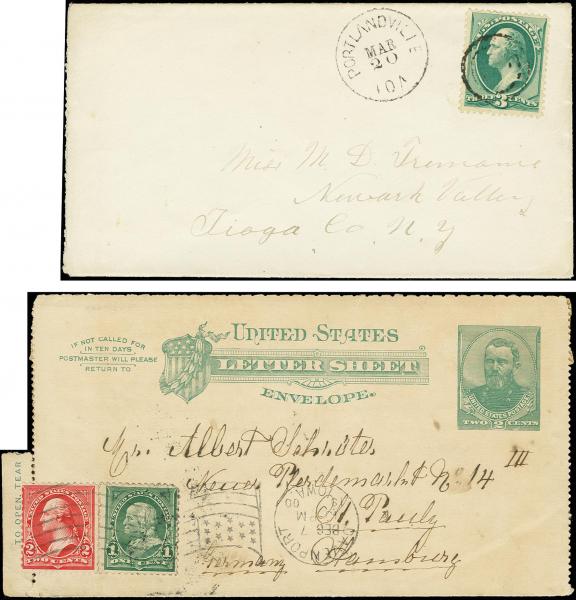 PORTLANDVILLE
MAR
20
IOA
U.S. POSTAGE
THREE 3 CENTS
Miss M. D. Tremaine
Newark Valley
Tioga Co. N. Y
IF NOT CALLED FOR
IN TEN DAYS
POSTMASTER WILL PLEASE
RETURN TO
UNITED STATES
LETTER SHEET
ENVELOPE.
UNITED STATES POSTAGE
TWO 2 CENTS
Mr. Albert Schröter
Neuer Pferdemarkt No 14 III
St. Pauly
Hamburg
Germany
DAVENPORT
DEC
7
M
00
IOWA
TO OPEN, TEAR
2 TWO CENTS 2
1 ONE CENT 1